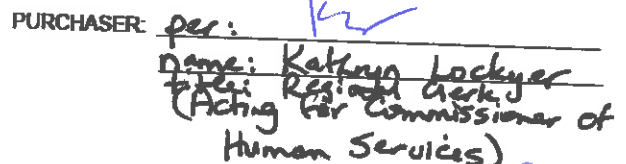 PURCHASER: per:
name: Kathryn Lockyer
title: Regional Clerk
(Acting for Commissioner of
Human Services)